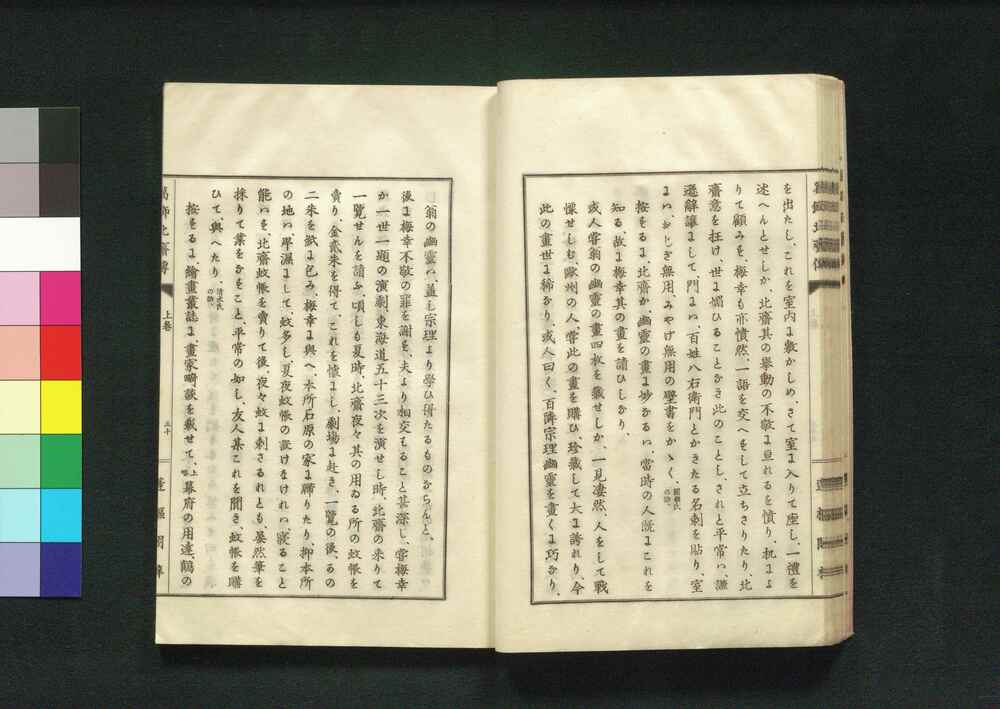 を出たし、これを室内に敷かしめ、さて室に入りて座し、一禮を
述へんとせしか、北齋其の擧動の不敬に亘れるを憤り、机により
て顧みを、梅幸も亦憤然、一語を交へをして立ちさりたり、北
齋意を枉け、世に媚ひることかき此のことし、されと平常ハ謙
遜辭讓にして、門にハ、百姓八右衛門とかきたる名刺を貼り、室
にハ、おじぎ無用、みやげ無用の壁書をかゝく、
按をるに、北齋か、幽靈の畫に妙かるハ、當時の人既にこれを
知る、故に梅幸其の畫を請ひしかり、
或人甞翁の幽靈の畫四枚を載せしか、一見凄然、人をして戰
慄せしむ、歐州の人、甞此の畫を購ひ、珍藏して大に誇れり、今
此の畫世に稀かり、或人曰く、百琳宗理幽靈を畫くに巧かり、
翁の幽靈ハ、蓋し宗理より學ひ得たるものからんと、
後に梅幸不敬の罪を謝を、夫より相交もること甚深し、甞梅幸
か一世一題の演劇、東海道五十三次を演せし時、北齋の來りて
一覽せんを請ふ、頃しも夏時、北齋夜々其の用ゐる所の蚊帳を
賣り、金貳朱を得て、これを懐にし、劇場に赴き、一覽の後、るの
二朱を紙に包み、梅幸に與へ、本所石原の家に歸りたり、抑本所
の地ハ、卑濕にして、蚊多し、夏夜蚊帳の設けなけれハ、寢ること
能ハを、北齋蚊帳を賣りて後、夜々蚊に刺さるれとも、晏然筆を
採りて業をかをこと、平常の如し、友人某これを聞き、蚊帳を購
ひて、與へたり、清水氏の話、
按をるに、繪畫叢誌に、畫家畸談を載せて、上略幕府の用達、鶴の
葛飾北齋傳
上卷
三十
蓬樞閣